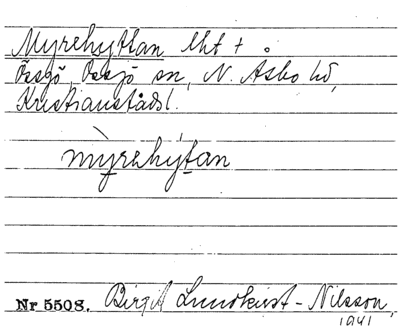 Myrehyttan lht + o
Össjö, Össjö sn, N. Åsbo hd,
Kristianstads l.
my̱rehýtan
Nr 5508. Birgit Lundkvist-Nilsson,
1941